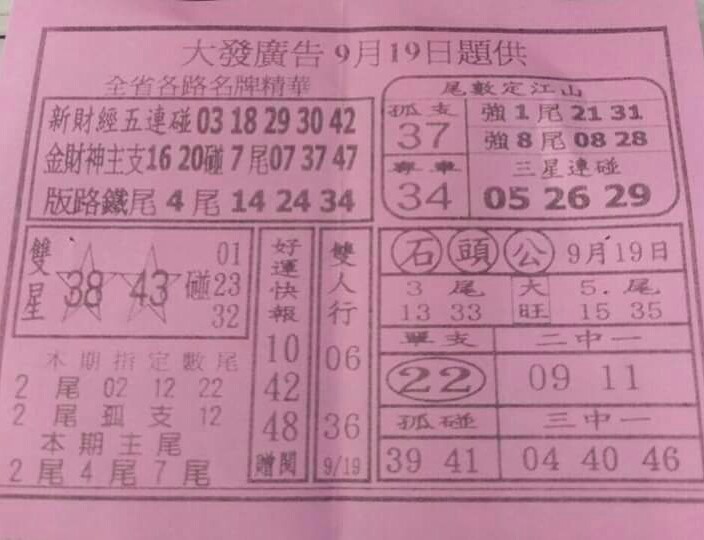 大發廣告9月19日題供
全省各路名牌精華
新財經五連碰03 18 29 30 42
金財神主支16 20碰7尾07 37 47
版路鐵尾4尾14 24 34
尾數定江山
孤支
37
專車
34
強1尾21 31
強8尾08 28
三星連碰
05 26 29
雙星
38 43 碰
01
23
32
本期指定數尾
2尾 02 12 22
2尾孤支12
本期主尾
2尾4尾7尾
好運快報
10
42
48
贈閱
雙人行
06
36
9/19
石頭公 9月19日
3尾 大旺 5.尾
13 33 15 35
單支 二中一
22 09 11
孤碰 三中一
39 41 04 40 46